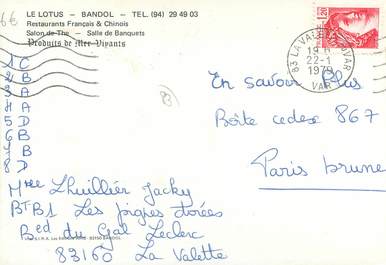 6€
LE LOTUS — BANDOL — TEL. (94) 29 49 03
Restaurants Français & Chinois
Salon de The — Salle de Banquets
Produits de Mer Vivants
1,20
83 LA VALETTE DU VAR
22-1
1979
VAR
1 C
2 B
3 A
4 A
5 D
6 B
7 B
8 D
En savoir Plus
Boîte cedex 867
Paris brune
Mme Lhuillier Jacky
BT B1 Les pignes dorées
Bed du Gal Leclerc
83160 La Valette